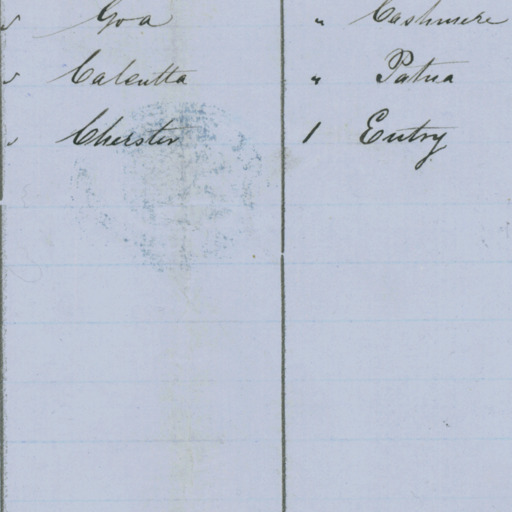 " Goa " Cashmere
" Calcutta " Patna
" Cheister 1 Entry